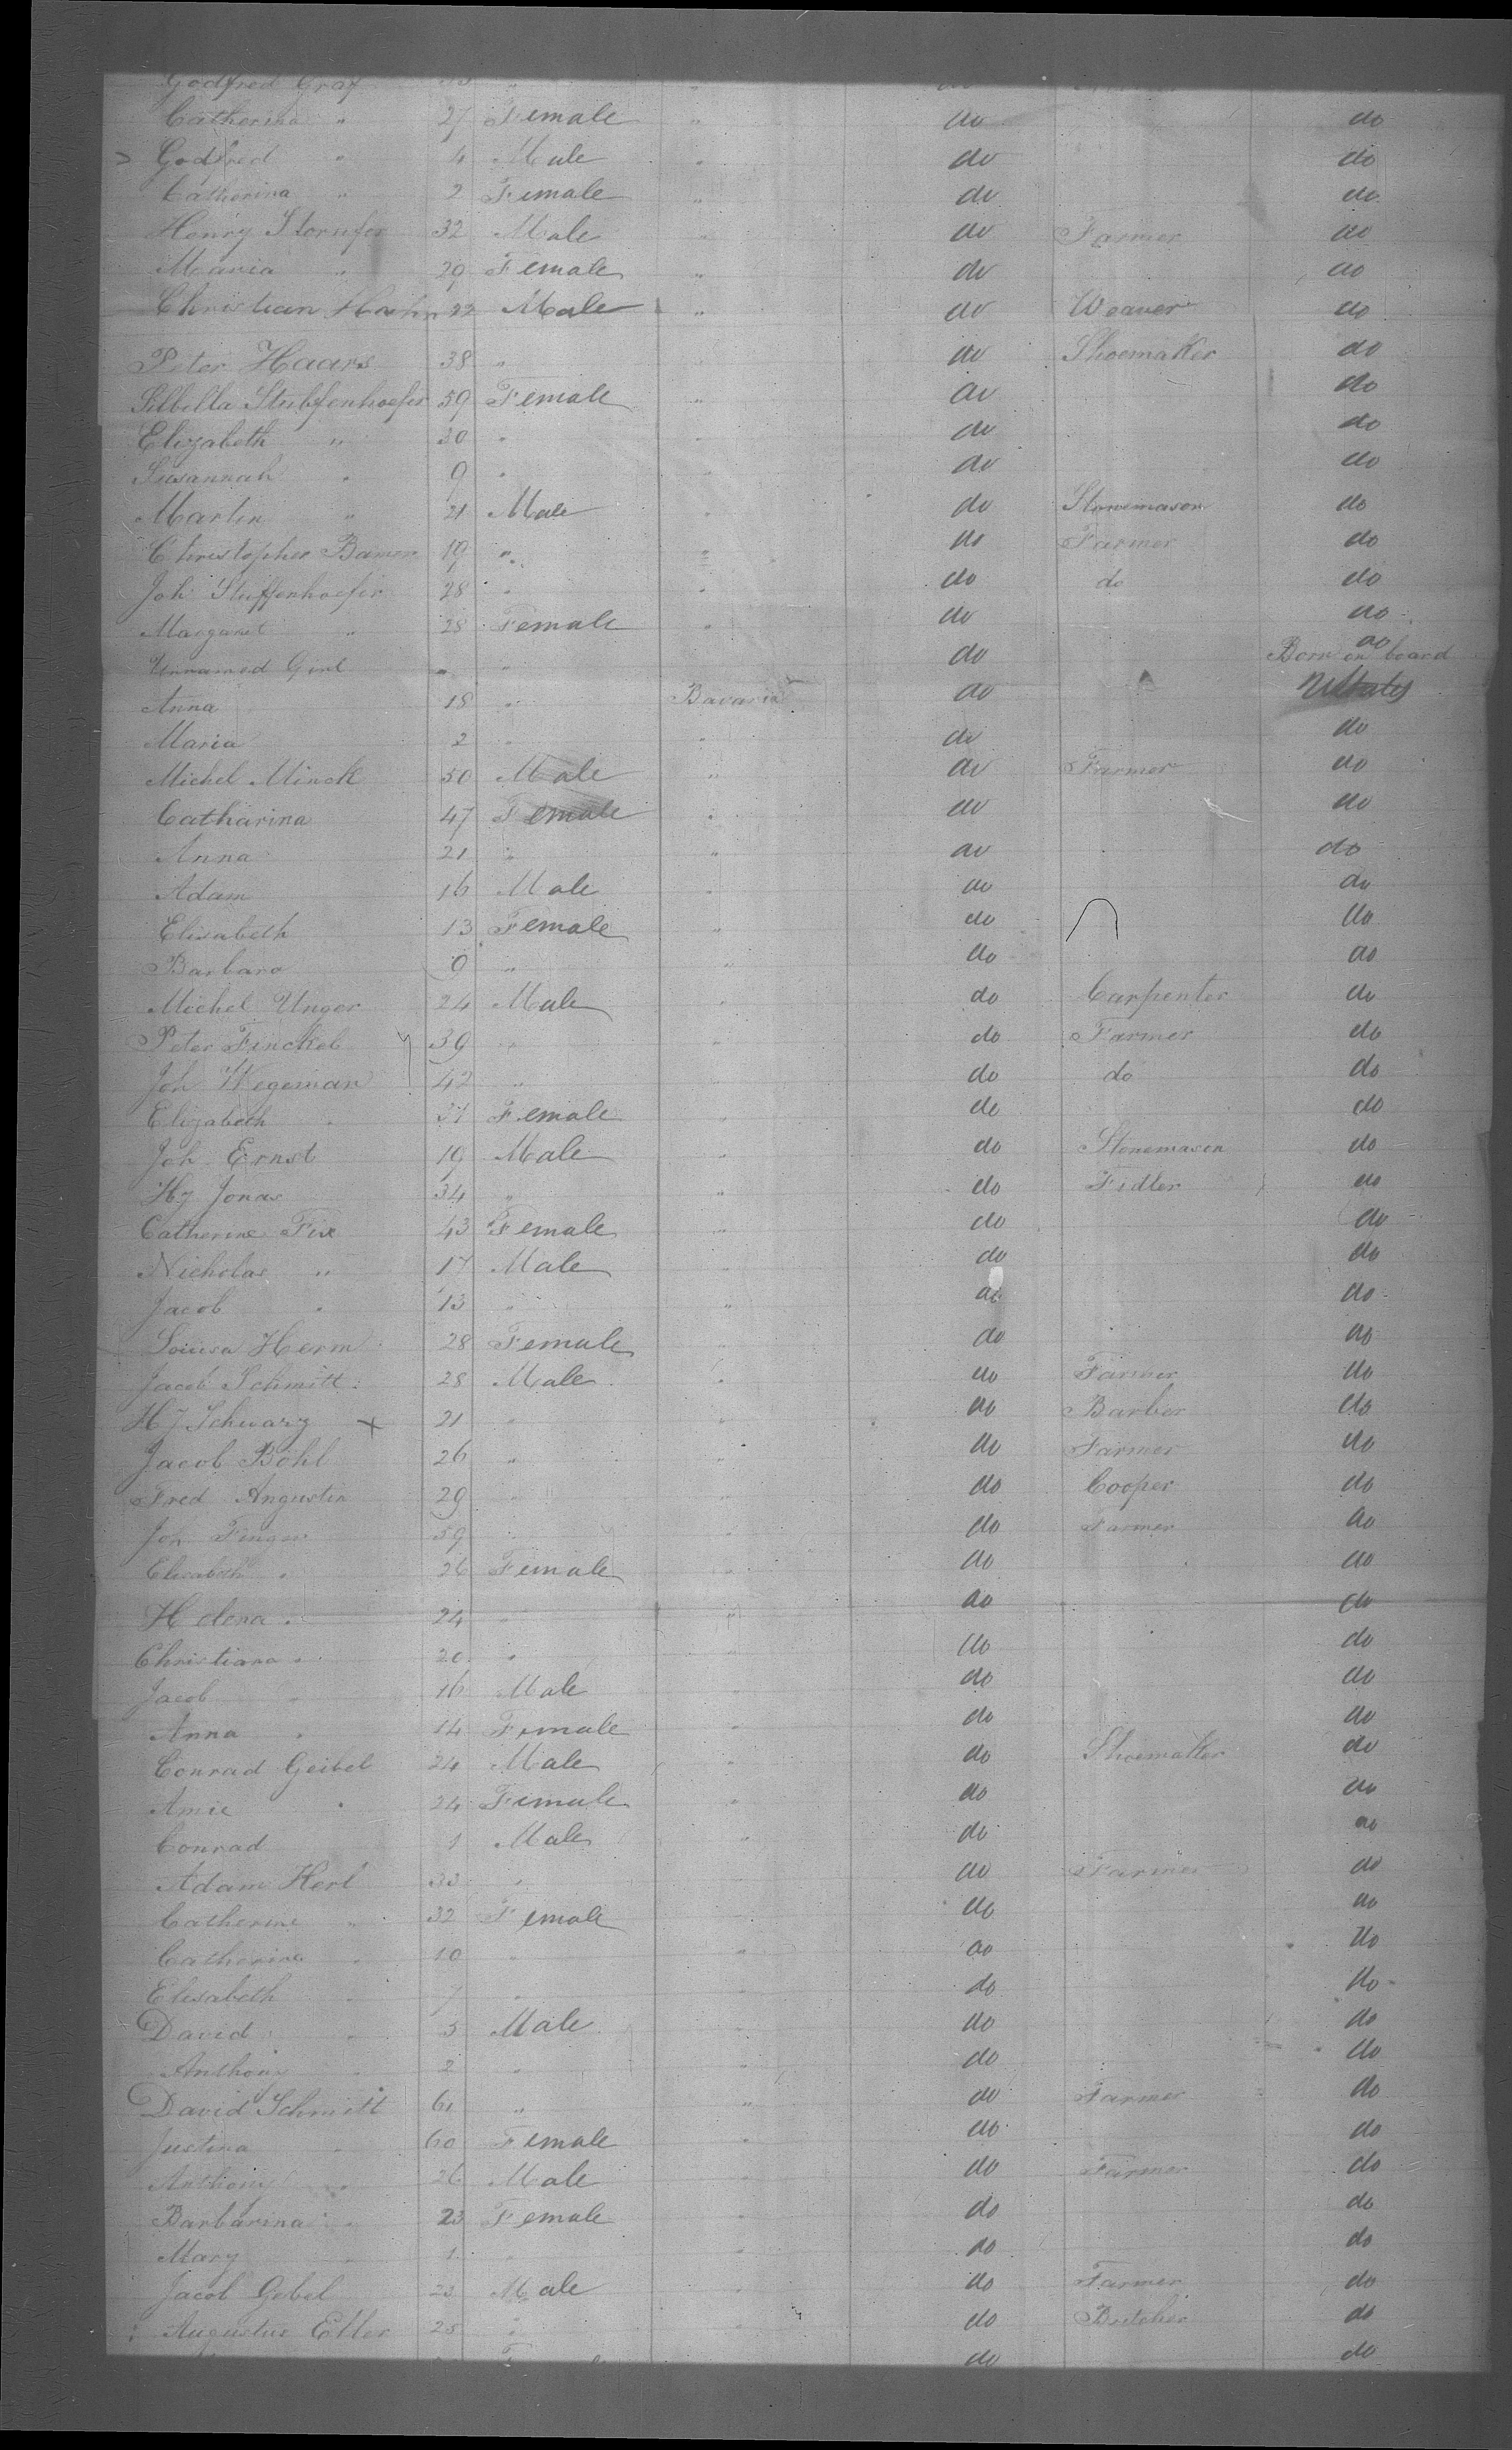 Godfred Graf " "
Catherina " 27 Female " do do
Godfred " 4 Male " do do
Catherina " 2 Female " do do
Henry Stornfer 32 Male " do Farmer do
Maria " 29 Female " do do
Christian Hahn 22 Male " do Weaver do
Peter Haars 38 " " do Shoemaker do
Silbilla Stubfenhoefer 59 Female " do do
Elizabeth " 30 " " do do
Susannah " 9 " " do do
Martin " 21 Male " do Stonemason do
Christopher Bamer 19 " " do Farmer do
Joh Stuffenhoefer 28 " " do do do
Margaret " 28 Female " do do
Unnamed Girl " " do do Born on board
Anna 18 " Bavaria do
Maria 2 " " do do
Michel Minck 50 Male " do Farmer do
Catharina 47 Female " do do
Anna 21 " " do do
Adam 16 Male " do do
Elisabeth 13 Female " do do
Barbara 9 " " do do
Michel Unger 24 Male " do Carpenter do
Peter Finckel 39 " " do Farmer do
Joh Wegeman 42 " do do do
Elizabeth " 37 Female " do do
Joh Ernst 19 Male " do Stonemason do
Hy Jonas 34 " " do Fidler do
Catherine Fix 43 Female " do do
Nicholas " 17 Male " do do
Jacob " 13 " " do do
Louisa Herm 28 Female " do do
Jacob Schmitt 28 Male " do Farmer do
Hy Schwarz x 21 " " do Barber do
Jacob Bohl 26 " " do Farmer do
Fred Angustin 29 " " do Cooper do
Joh Finger 59 " " do Farmer do
Elisabeth " 26 Female " do do
Helena " 24 " " do do
Christiana " 20 " " do do
Jacob " 16 Male " do do
Anna " 14 Female " do do
Conrad Geibel 24 Male " do Shoemaker do
Amie " 24 Female " do do
Conrad 1 Male " do do
Adam Herl 33 " do Farmer do
Catherine " 32 Female do do
Catherine " 10 " " do do
Elisabeth " 7 " " do do
David " 5 Male " do do
Anthony " 2 " " do do
David Schmitt 61 " " do Farmer do
Justina " 60 Female " do do
Anthony " 26 Male " do Farmer do
Barbarina " 23 Female " do do
Mary " 1 " " do do
Jacob Gobel 23 Male " do Farmer do
Augustus Etler 25 " " do Butcher do
do do